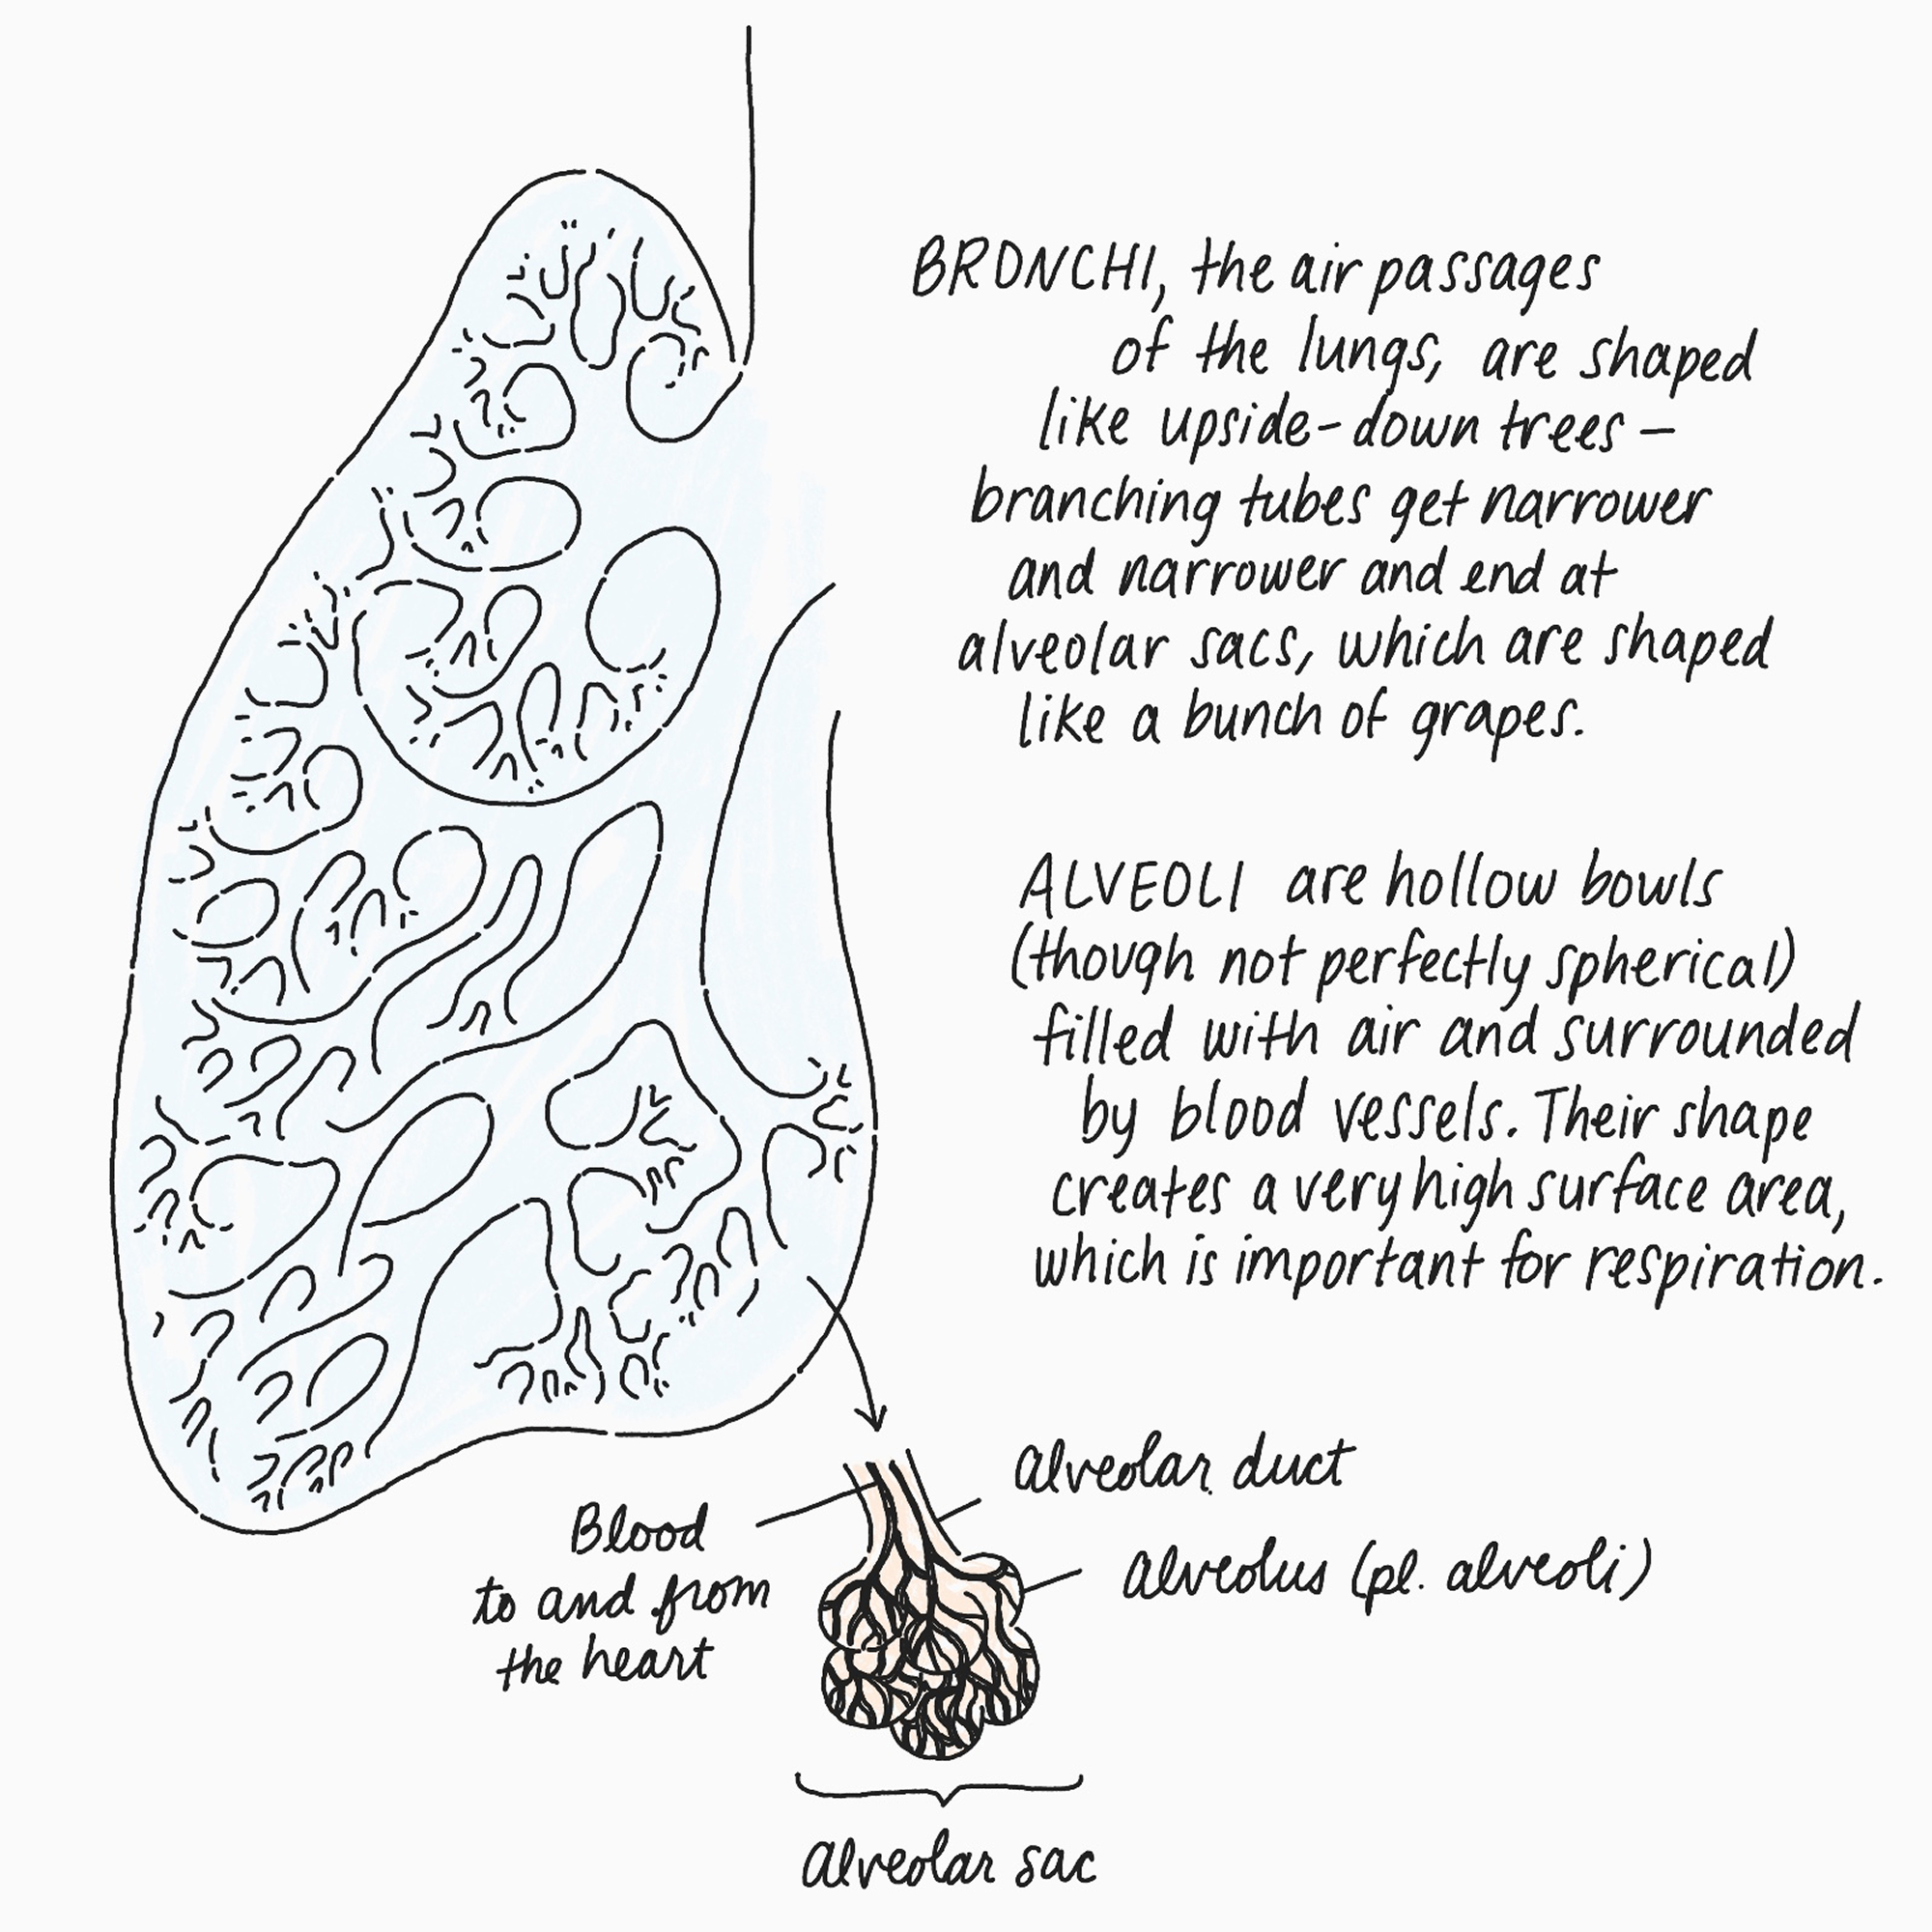 BRONCHI, the air passages
of the lungs, are shaped
like upside-down trees –
branching tubes get narrower
and narrower and end at
alveolar sacs, which are shaped
like a bunch of grapes.
ALVEOLI are hollow bowls
(though not perfectly spherical)
filled with air and surrounded
by blood vessels. Their shape
creates a very high surface area,
which is important for respiration.
alveolar duct
Blood
to and from
the heart
alveolus (pl. alveoli)
alveolar sac